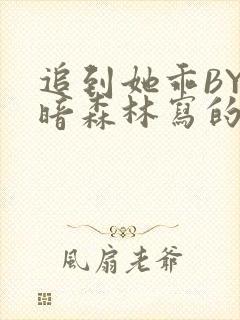 追到她乖BY
暗森林寫的
風扇老爺